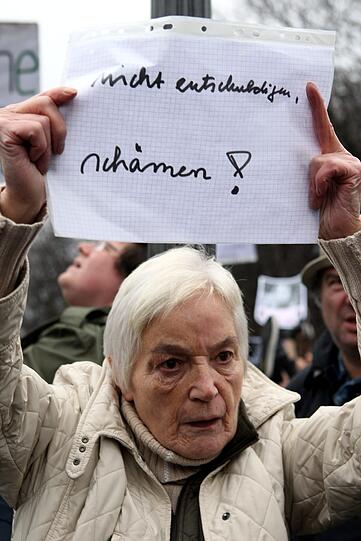 nicht entschuldigen,
schämen !